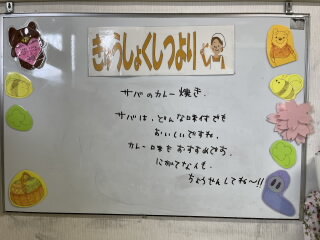 きゅうしょくしつより
サバのカレー焼き.
サバは、どんな味付でも
おいしいですね.
カレー味もおすすめです.
にがてな人も.
ちょうせんしてね〜!!